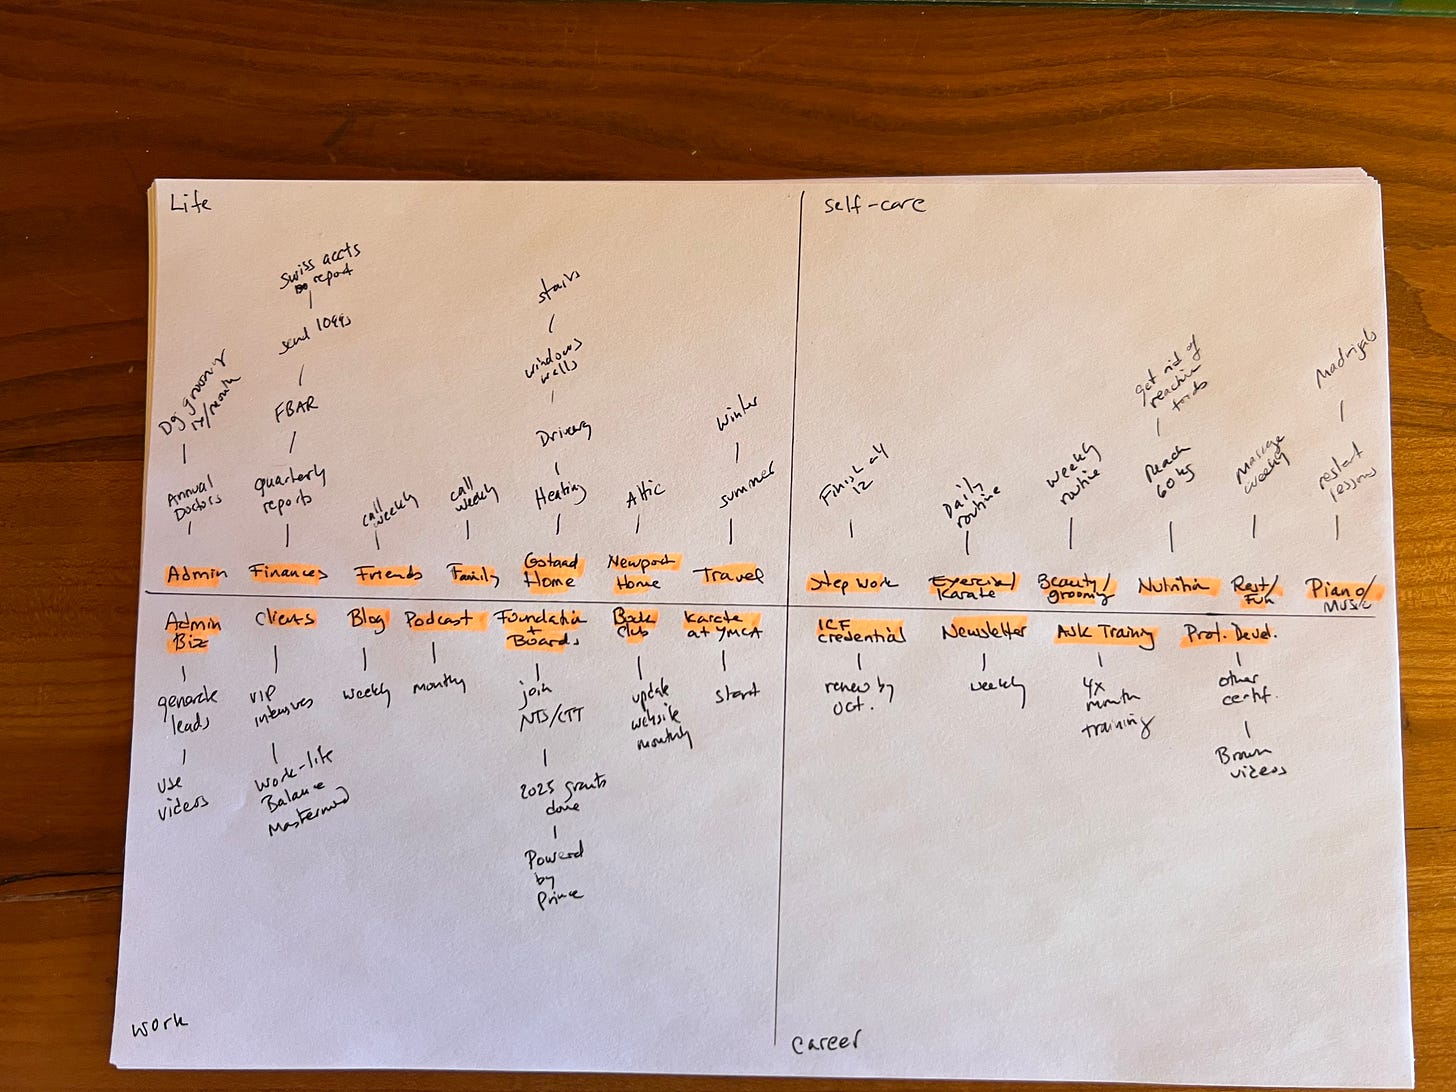 Life
Swiss accts
report
send 1099s
FBAR
quarterly
reports
Dog grooming
1x/month
Annual
Doctors
call
weekly
call
weekly
stairs
windows
wells
Heating
Attic
Winter
summer
Admin
Finances
Friends
Family
Gstaad
Home
Newport
Home
Travel
self-care
Finish all
12
Daily
routine
weekly
routine
get rid of
reactive
Reach
60 kg
massage
weekly
Madrigals
restart
lessons
Step work
Exercise/
Karate
Beauty/
grooming
Nutrition
Rest/
Fun
Piano/
Music
Admin
Biz
generate
leads
use
videos
Clients
VIP
intensives
Work-life
Balance
Mastermind
Blog
weekly
Podcast
monthly
Foundation
+
Boards
join
NTS/CTT
2025 grants
done
Powered
by
Prince
Book
club
update
website
monthly
karate
at YMCA
start
work
ICF
credential
renew by
Oct.
Newsletter
weekly
Ask Training
4x
month
training
Prof. Devel.
other
certif.
Brown
videos
career